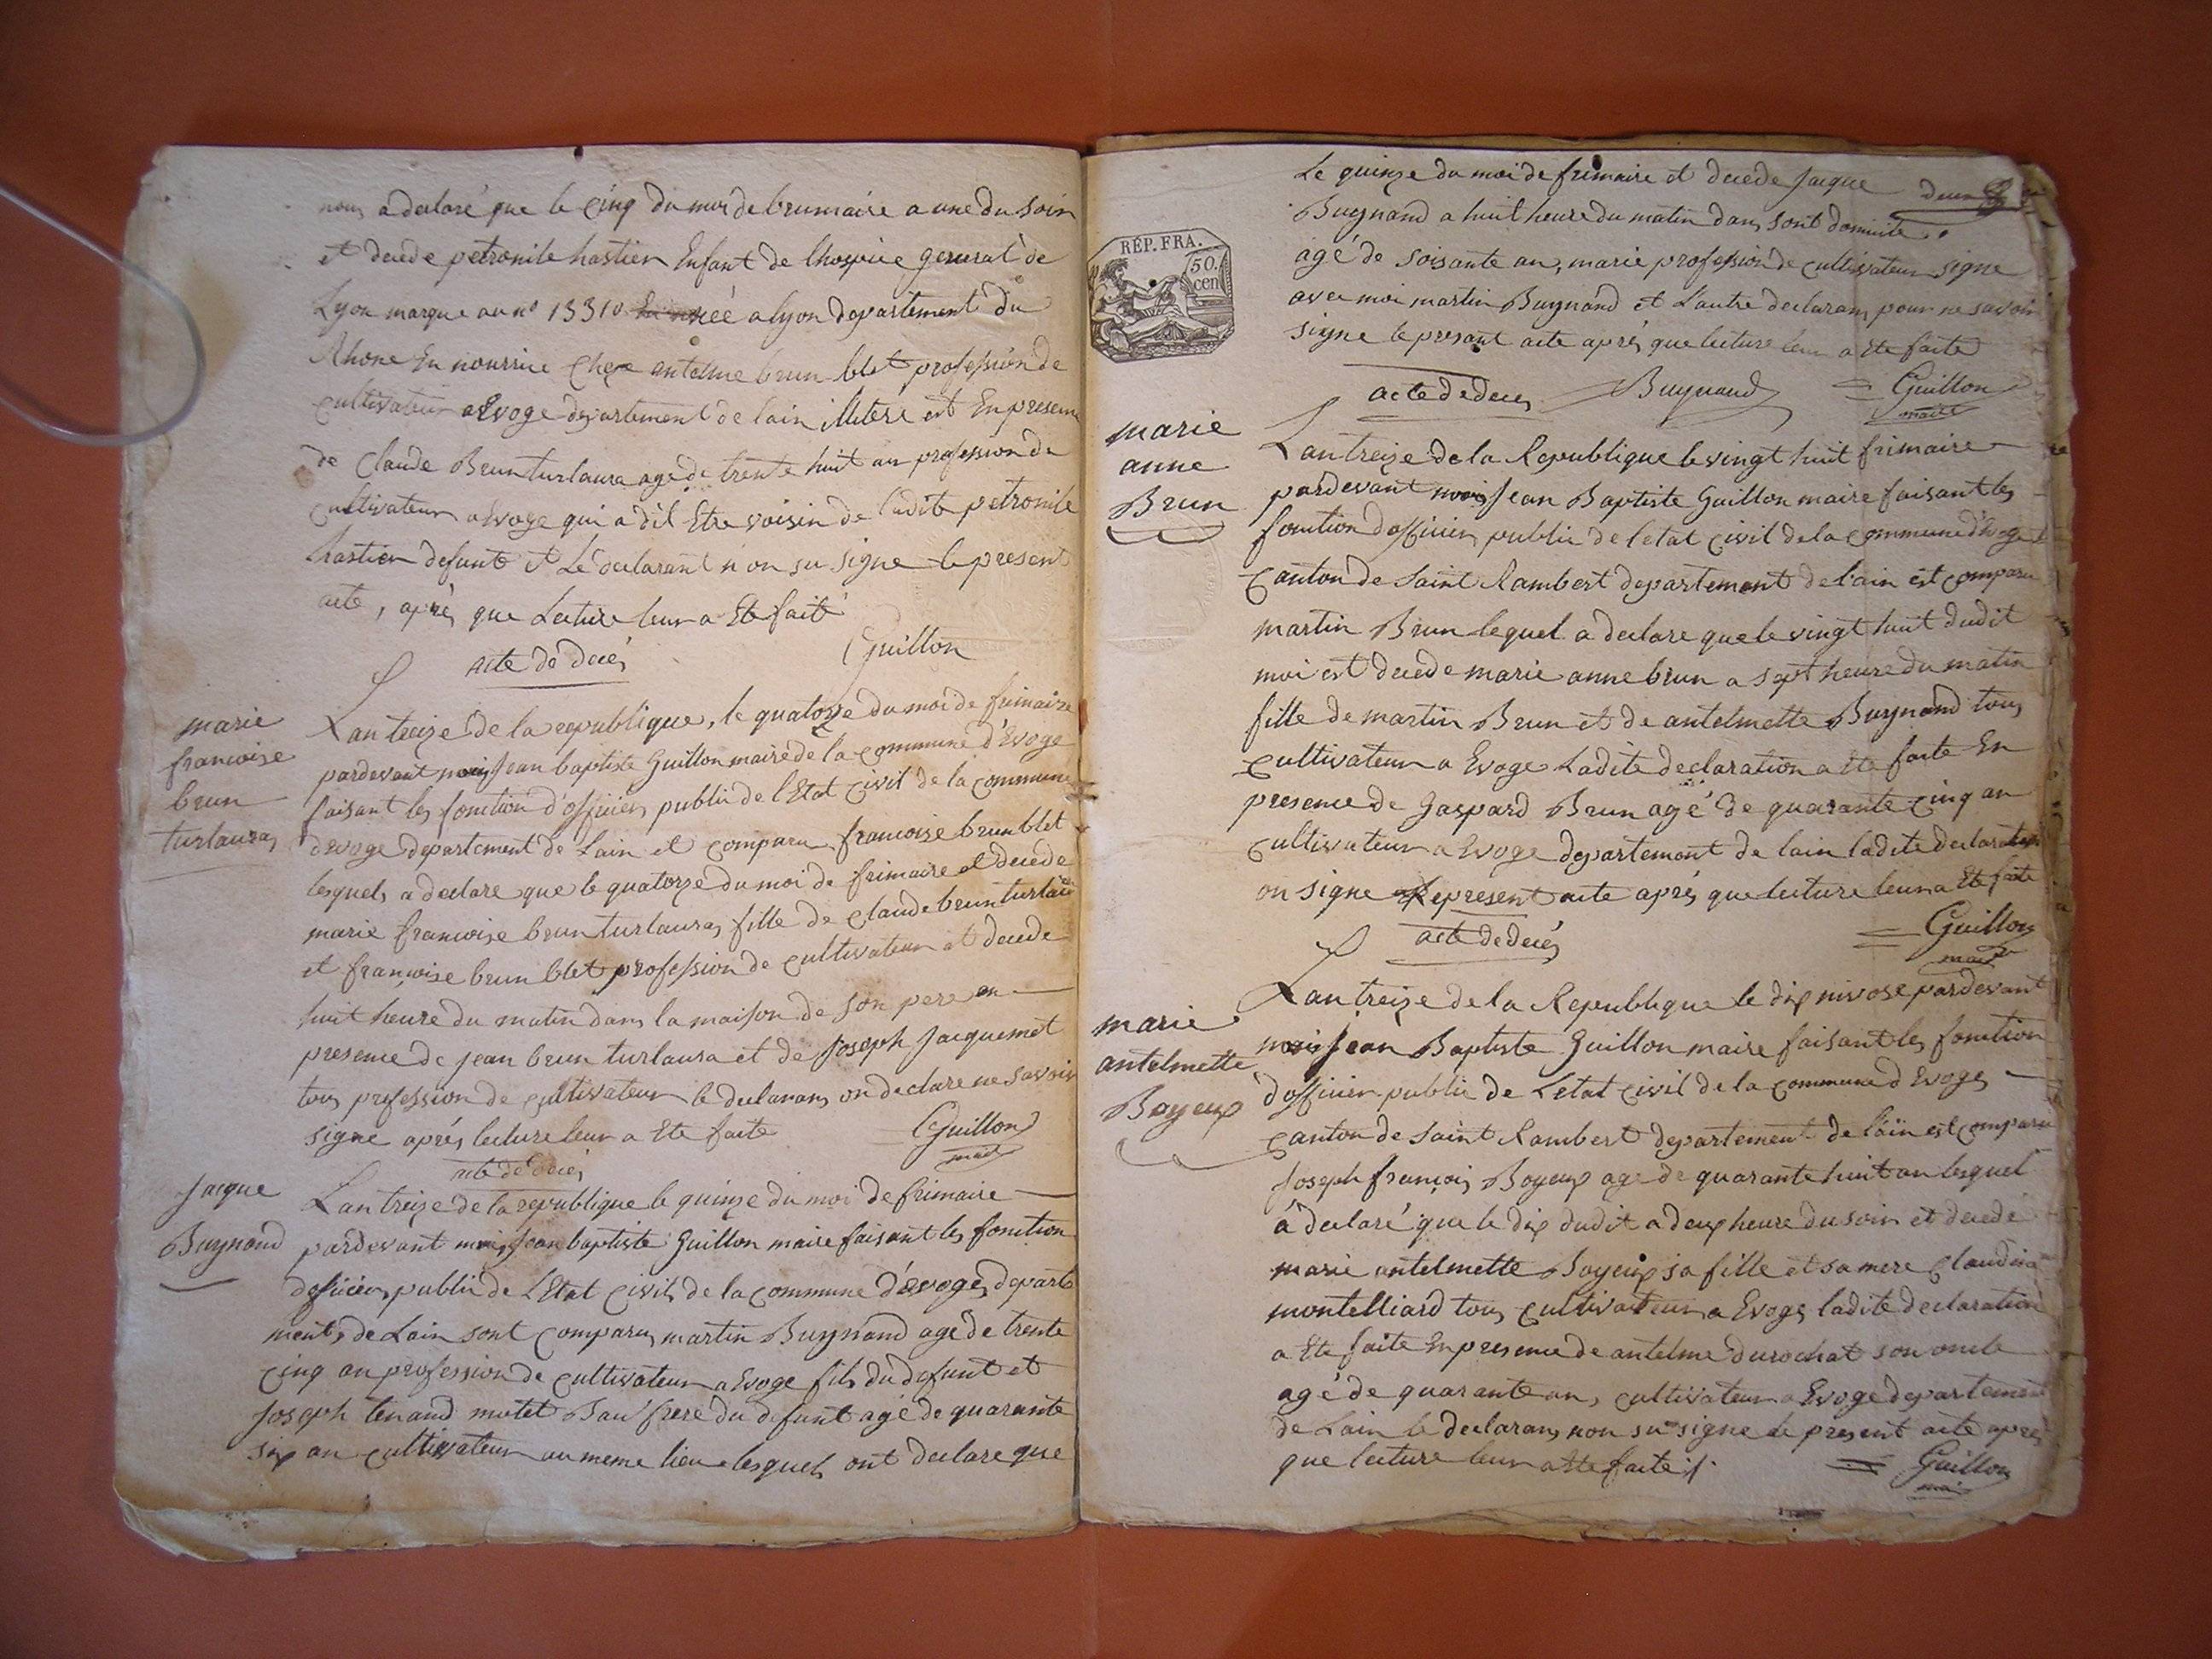 nous a declaré que le cinq du moi de brumaire a une du soir
et decede petronile hastier Enfant de lhospice general de
Lyon marque au n° 13310 née a lyon departement du
Rhone En nourrice chez antelme brun blet profession de
cultivateur a Evoge departement de lain illiteré est En presence
de Claude Brun turlaura age de trente huit an profession de
cultivateur a Evoge qui a dit Etre voisin de ladite petronile
hastier defunt et Le declarant non su signe le present
acte, après que Lecture leur a Ete faite
Guillon
acte de décés
marie
francoise
brun
turlauras
L'an treize de la republique, le quatorze du moi de frimaire
pardevant mois Jean baptiste Guillon maire de la commune d'Evoge
faisant les fonction d'officier public de l'Etat civil de la commune
devoge departement de Lain et comparu francoise brun blet
lesquels a declare que le quatorze du moi de frimaire et decede
marie francoise brun turlauras fille de claude brun turlaura
et françoise brun blet profession de cultivateur et decede
huit heure du matin dans la maison de son pere en
presence de jean brun turlaura et de Joseph Jacquemet
tous profession de cultivateur le declarans on declare ne savoir
signe aprés lecture leur a Ete faite
Guillon
maire
acte de décés
Jacque
Buynand
L'an treize de la republique le quinze du moi de frimaire
pardevant mois Jean baptiste Guillon maire faisant les fonction
dofficier public de L'Etat civil de la commune d'evoges departe
ment de Lain sont comparus martin Buynand age de trente
cinq an profession de cultivateur a Evoge fils du defunt et
Joseph tenand mutet Bau frere du defunt agé de quarante
six an cultivateur au meme lieu lesquels ont declare que
Le quinze du moi de frimaire et decede Jacque
Buynand a huit heure du matin dans sont domicile
agé de soisante an, marie profession de cultivateur signe
avec moi martin Buynand et Lautre declarans pour ne savoir
signe le present acte aprés que lecture leur a Ete faite
RÉP. FRA.
50.
cen
acte de deces
Buynand
Guillon
maire
marie
anne
Brun
L'an treize de la Republique le vingt huit frimaire
pardevant mois Jean Baptiste Guillon maire faisant les
fonction dofficier public de letat civil de la commune d'Evoges
canton de saint Rambert departement de lain est comparu
martin Brun lequel a declare que le vingt huit dudit
moi est decede marie anne brun a sept heure du matin
fille de martin Brun et de antelmette Buynand tous
cultivateur a Evoge Ladite declaration a Ete faite En
presence de Gaspard Brun agé de quarante cinq an
cultivateur a Evoge departement de lain ladite declaration
on signe Le present acte aprés que lecture leur a Ete faite
Guillon
maire
acte de decés
marie
antelmette
Boyeux
L'an treize de la Republique le dix nivose pardevant
mois Jean Baptiste Guillon maire faisant les fonction
d'officier public de Letat civil de la commune d Evoges
canton de saint Rambert departement de l'ain est comparu
Joseph françois Boyeux age de quarante huit an lesquel
à declaré que le dix dudit a deux heure du soir et decede
marie antelmette Boyeux sa fille et sa mere Claudine
montelliard tous cultivateur a Evoges ladite declaration
a Ete faite En presence de antelme durochat son oncle
agé de quarante an, cultivateur a Evoge departement
de Lain le declarans non su signe le present acte aprés
que lecture leur a Ete faite
Guillon
maire